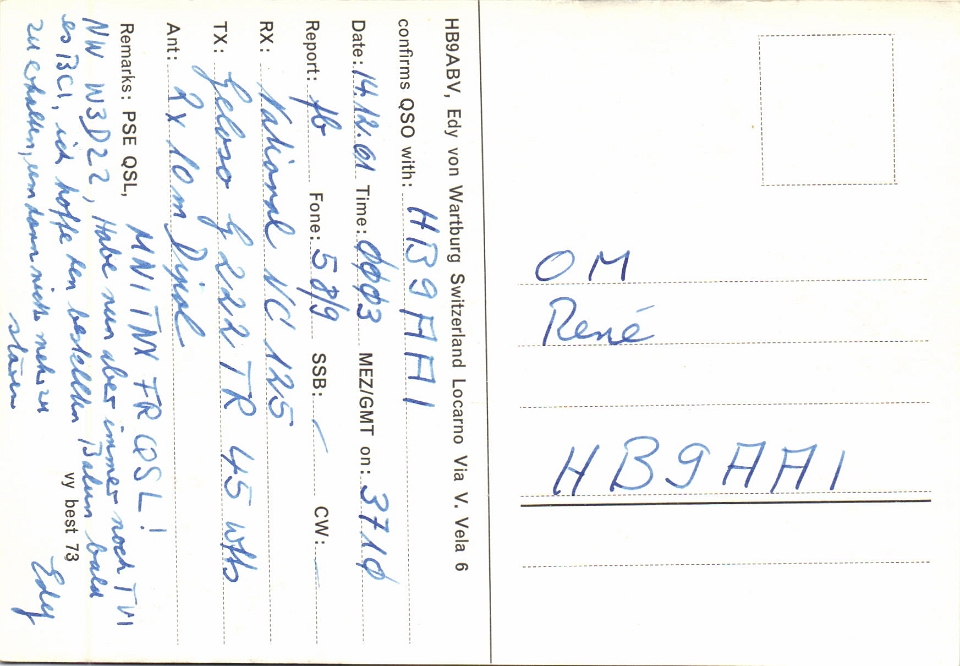 HB9ABV, Edy von Wartburg Switzerland Locarno Via V. Vela 6
confirms QSO with: HB9AAI
Date: 14.12.61 Time: 0003 MEZ/GMT on: 3710
Report: fb Fone: 58/9 SSB: / CW:
RX: National NC 125
TX: Geloso G 222 TR 45 Watts
Ant: RX 10m Dipol
Remarks: PSE QSL, MNI TNX FR QSL!
NW W3DZZ, Habe nun aber immer noch TVI
es BCI, ich hoffe den bestellten Balun bald
zu erhalten, um dann nicht mehr zu
stören
vy best 73 Edy
OM
René
HB9AAI